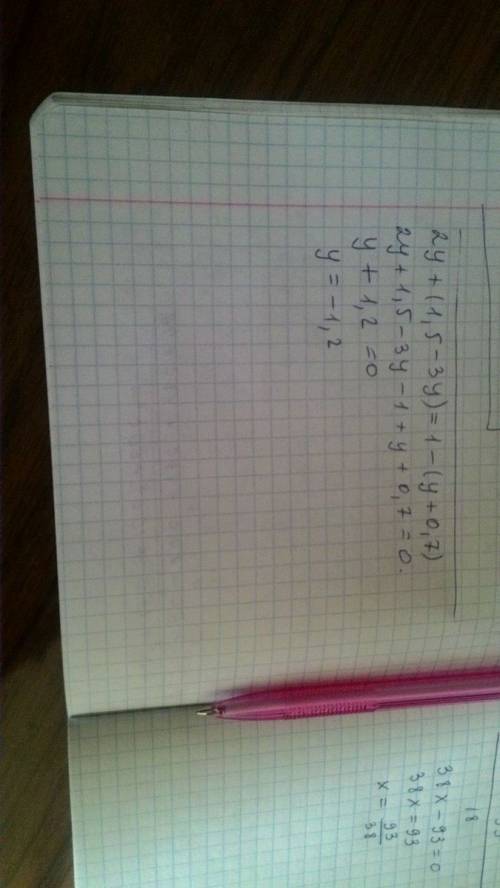 2y + (1,5 - 3y) = 1 - (y + 0,7)
2y + 1,5 - 3y - 1 + y + 0,7 = 0.
y + 1,2 = 0
y = -1,2
18
38x - 93 = 0
38x = 93
x = 93/38